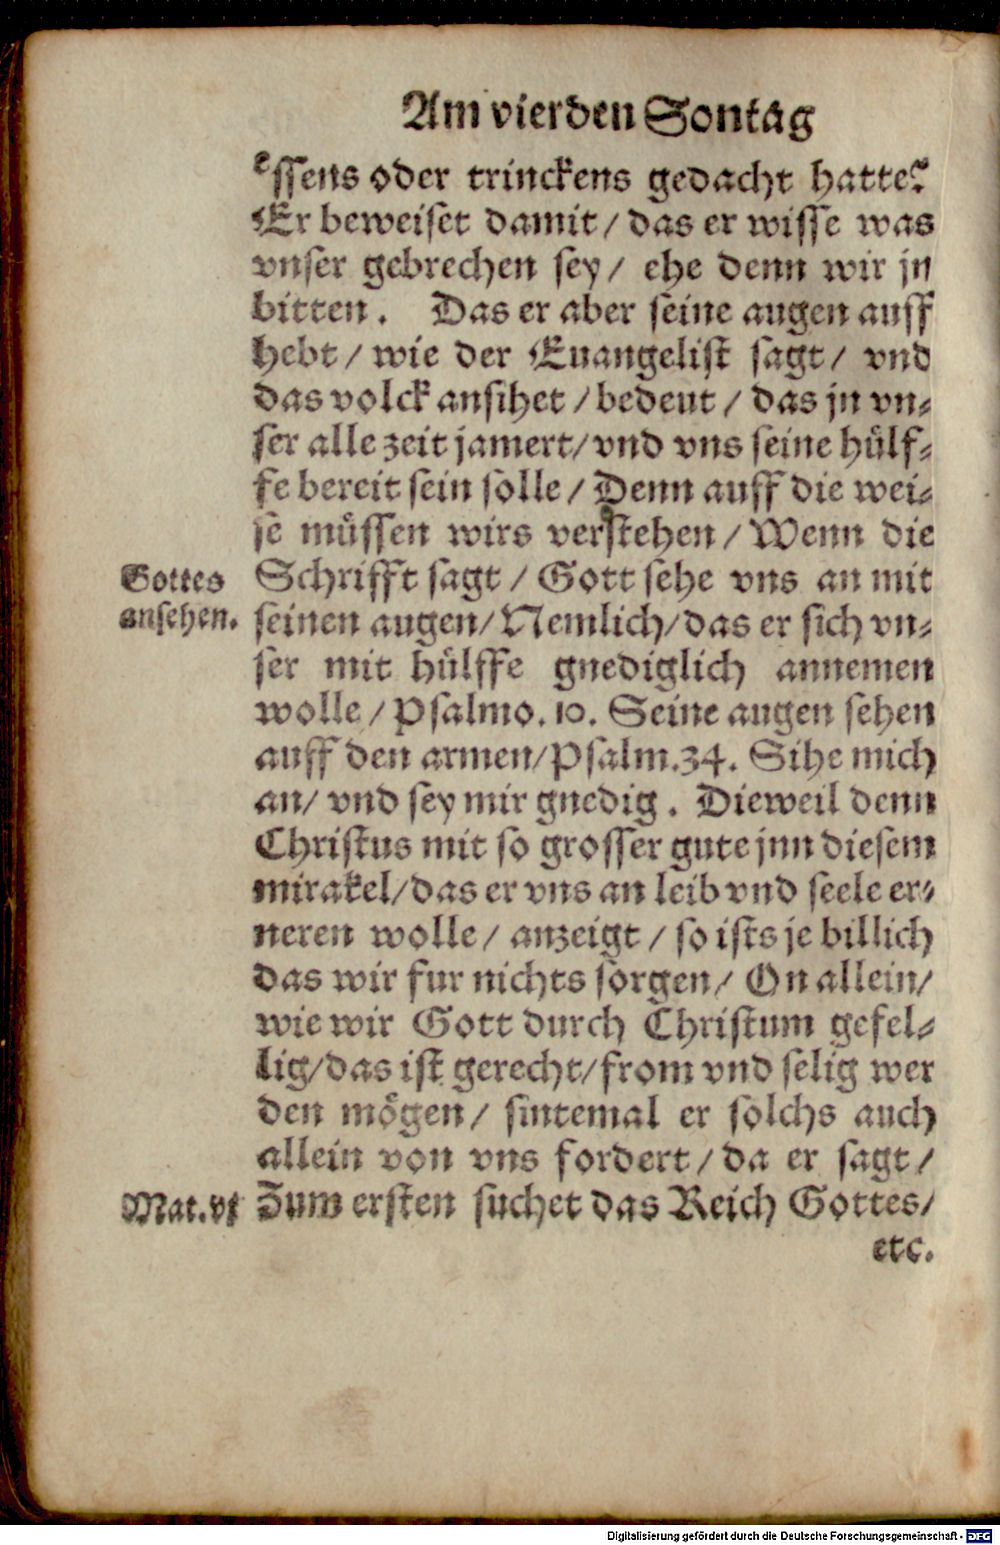 Am vierden Sontag
essens oder trinckens gedacht hatte?
Er beweiset damit / das er wisse was
vnser gebrechen sey / ehe denn wir jn
bitten. Das er aber seine augen auff
hebt / wie der Euangelist sagt / vnd
das volck ansihet / bedeut / das jn vn-
ser alle zeit jamert / vnd vns seine hülf-
fe bereit sein solle / Denn auff die wei-
se müssen wirs verstehen / Wenn die
Gottes Schrifft sagt / Gott sehe vns an mit
ansehen. seinen augen / Nemlich / das er sich vn-
ser mit hülffe gnediglich annemen
wolle / Psalmo. 10. Seine augen sehen
auff den armen / Psalm. 34. Sihe mich
an / vnd sey mir gnedig. Dieweil denn
Christus mit so grosser gute jnn diesem
mirakel / das er vns an leib vnd seele er-
neren wolle / anzeigt / so ists je billich
das wir fur nichts sorgen / On allein /
wie wir Gott durch Christum gefel-
lig / das ist gerecht / from vnd selig wer
den mögen / sintemal er solchs auch
allein von vns fordert / da er sagt /
Mat. vj Zum ersten suchet das Reich Gottes /
etc.
Digitalisierung gefördert durch die Deutsche Forschungsgemeinschaft - DFG